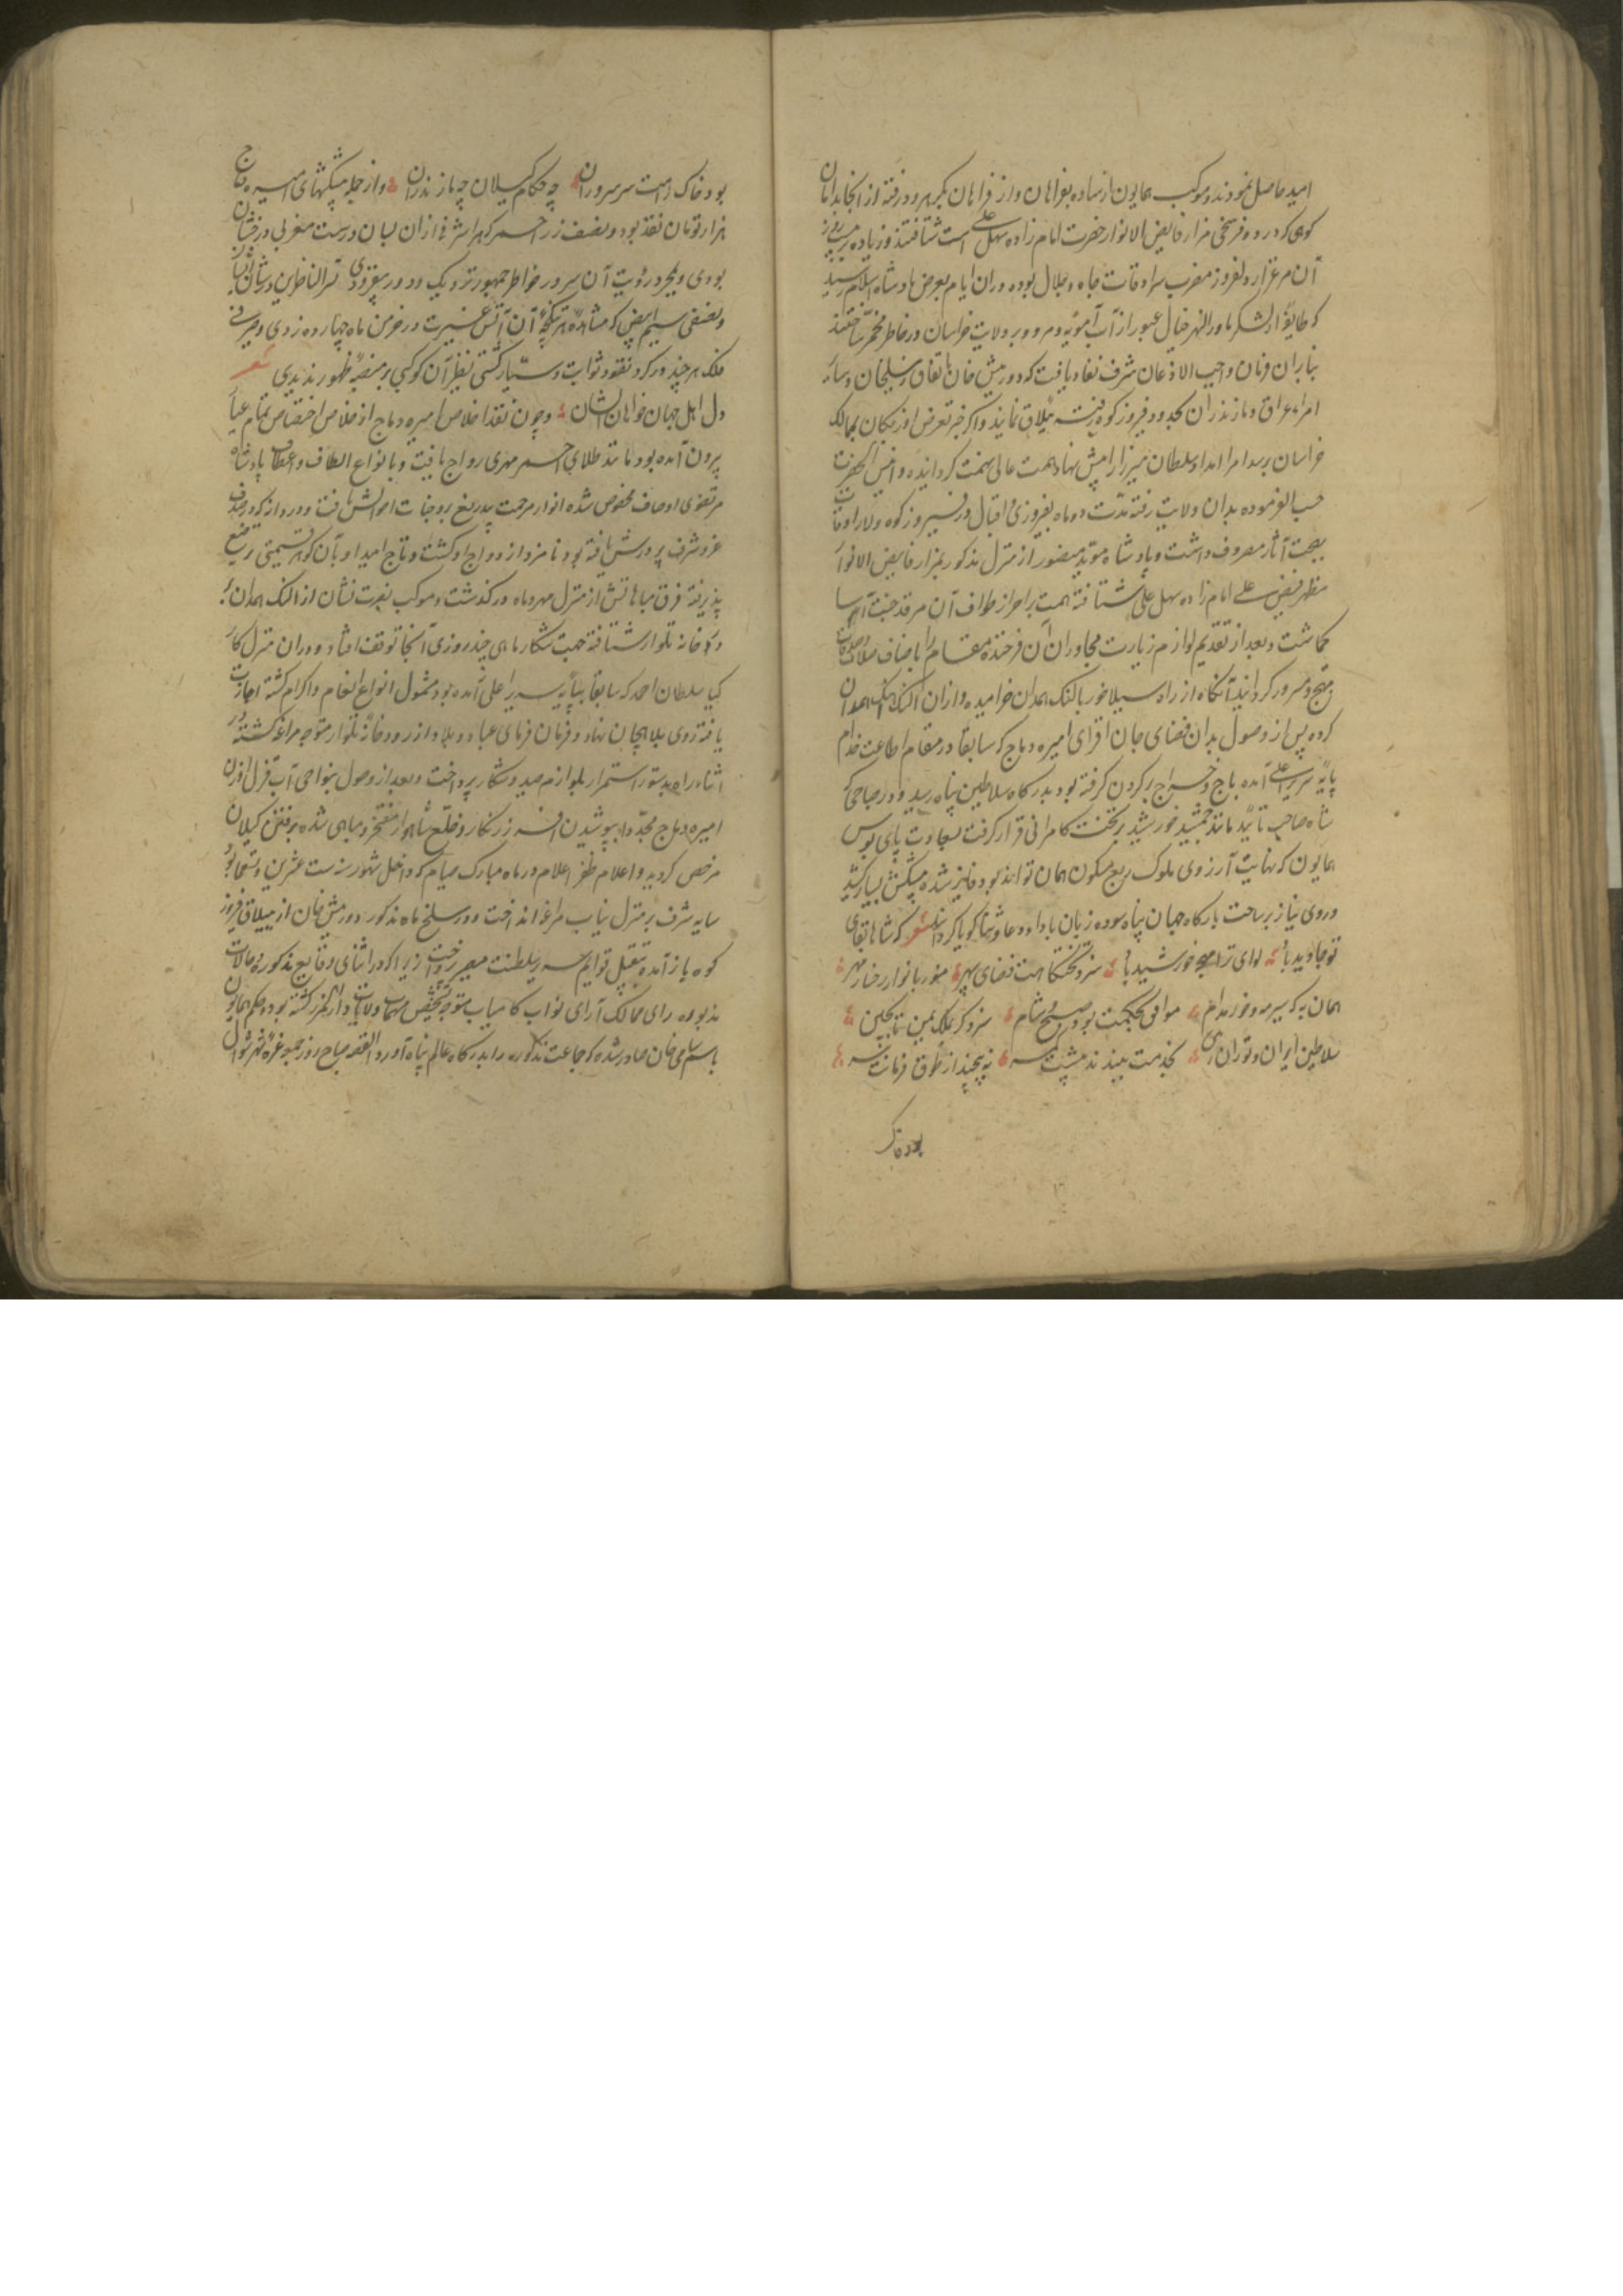 امید حاصل نمودند و موکب همایون از ساوه بفراهان و از فراهان بکرهرود رفته از آنجا بدامان
کوهی که در دو فرسخی مزار فایض الانوار حضرت امام زاده سهل علی است شتافتند و زیاده بر سی روز
آن مرغزار دلفروز مضرب سرادقات جاه و جلال بوده در ان ایام بعرض پادشاه اسلام رسید
که طایفهٔ از لشکر ماورالنهر خیال عبور از آب آمویه و مرور بر ولایت خراسان در خاطر مخمر ساختند
بنابران فرمان واجب الاذعان شرف نفاذ یافت که دورمیش خان باتفاق زینلخان و سایر
امراء عراق و مازندران بحدود فیروزکوه رفته ییلاق نمایند و اگر خبر تعرض اوزبکان بممالک
خراسان برسد امراء امداد سلطان میرزا را پیش نهاد همت عالی نهمت گردانیده و انیس الحضرت
حسب الفرموده بدان ولایت رفته مدت دو ماه بفیروزی و اقبال در فیروزکوه و لار اوقات
بهجت آثار مصروف داشت و پادشاه موید منصور از منزل مذکور بمزار فایض الانوار
مظهر فیض علی امام زاده سهل علی شتافته همت بر احراز طواف آن مرقد جنت آسا
گماشت و بعد از تقدیم لوازم زیارت مجاوران آن فرخنده مقام را باصناف صلات و صدقات
مبتهج و مسرور گردانید آنگاه از راه سیلاخور بالنک همدان خرامیده و از ان النک آهنک همدان
کرده پس از وصول بدان فضای جان افزای امیره دباج که سابقا در مقام اطاعت خدام
پایهٔ سریر اعلی آمده باج و خراج بر گردن گرفته بود بدرگاه سلاطین پناه رسید و در صباحی که
شاه صاحب تایید مانند جمشید خورشید بر تخت کامرانی قرار گرفت بسعادت پای بوس
همایون که نهایت آرزوی ملوک ربع مسکون همان تواند بود فایز شده پیشکش بسیار کشید
و روی نیاز بر ساحت بارگاه جهان پناه سوده زبان باداء دعا و ثنا گویا گردانید شعر که شاها بقای
تو جاوید باد لوای ترا مهچه خورشید باد سزد تختگاهت فضای سپهر منور بانوار رخسار مهر
همان به که سیر مه و خور مدام موافق بحکمت بود صبح و شام سزد گر بملک یمین تا بچین
سلاطین ایران و توران زمین بخدمت ببندند پیشت کمر نپیچند از طوق فرمانت سر
بود خاک
بود خاک راهت سر سروران چه حکام گیلان چه مازندران و از جمله پیشکشهای امیره دباج
هزار تومان نقد بود و نصف زر احمر که هر اشرفی از ان بسان درست مغربی درخشان
بودی و بمجرد رؤیت آن سرور خواطر جمهور نزدیک و دور بیفزودی تسر الناظرین در شان آن
و نصفی سیم ابیض که مشاهدهٔ هر تنکچهٔ آن آتش غیرت در خرمن ماه چهارده زدی و صیرفی
فلک هر چند در گرد نقود ثوابت و سیار گشتی نظیر آن کوکبی بر منصهٔ ظهور ندیدی شعر
دل اهل جهان خواهان ایشان و چون نقد اخلاص امیره دباج از خلاص اختصاص تمام عیار
بیرون آمده بود مانند طلای احمر مهری رواج یافت و بانواع الطاف و اعطاف پادشاه
مرتضوی اوصاف مخصوص شده انوار مرحمت بیدریغ بر وجنات احوالش تافت و دردانه که در صدف
عز و شرف پرورش یافته بود نامزد ازدواج او گشت و تاج امید او بآن گوهر قیمتی ترصیع
پذیرفته فرق مباهاتش از منزل مهر و ماه در گذشت و موکب نصرت نشان از النک همدان بر
رودخانه تلوار شتافته جهت شکار ماهی چند روزی آنجا توقف افتاد و در ان منزل کار
کیا سلطان احمد که سابقا بپایه سریر اعلی آمده بود مشمول انواع انعام و اکرام گشته اجازت
یافته روی بلاهیجان نهاد و فرمان فرمای عباد و بلاد از رودخانه تلوار متوجه مراغه گشته در
اثناء راه بدستور استمرار بلوازم صید و شکار پرداخت و بعد از وصول بنواحی آب قزل اوزن
امیره دباج مجددا بپوشیدن افسر زرنگار و خلع شاهوار مفتخر و مباهی شده برفتن گیلان
مرخص گردید و اعلام ظفر اعلام در ماه مبارک صیام که داخل شهور سنه ست عشرین و تسعمایه بود
سایه شرف بر منزل ییاب مراغه انداخت و در سلخ ماه مذکور دورمیش خان از ییلاق فیروز
کوه باز آمده بتقبیل قوایم سریر سلطنت مصیر پرداخت زیرا که در اثنای وقایع مذکوره و حالات
مزبوره رای ممالک آرای نواب کامیاب متوجه تشخیص مهمات ولایات دار المرز گشته بود و حکم همایون
باسم سامی خان صادر شده که جماعت مذکوره را بدرگاه عالم پناه آورد القصه صباح روز جمعه غرهٔ شهر شوال